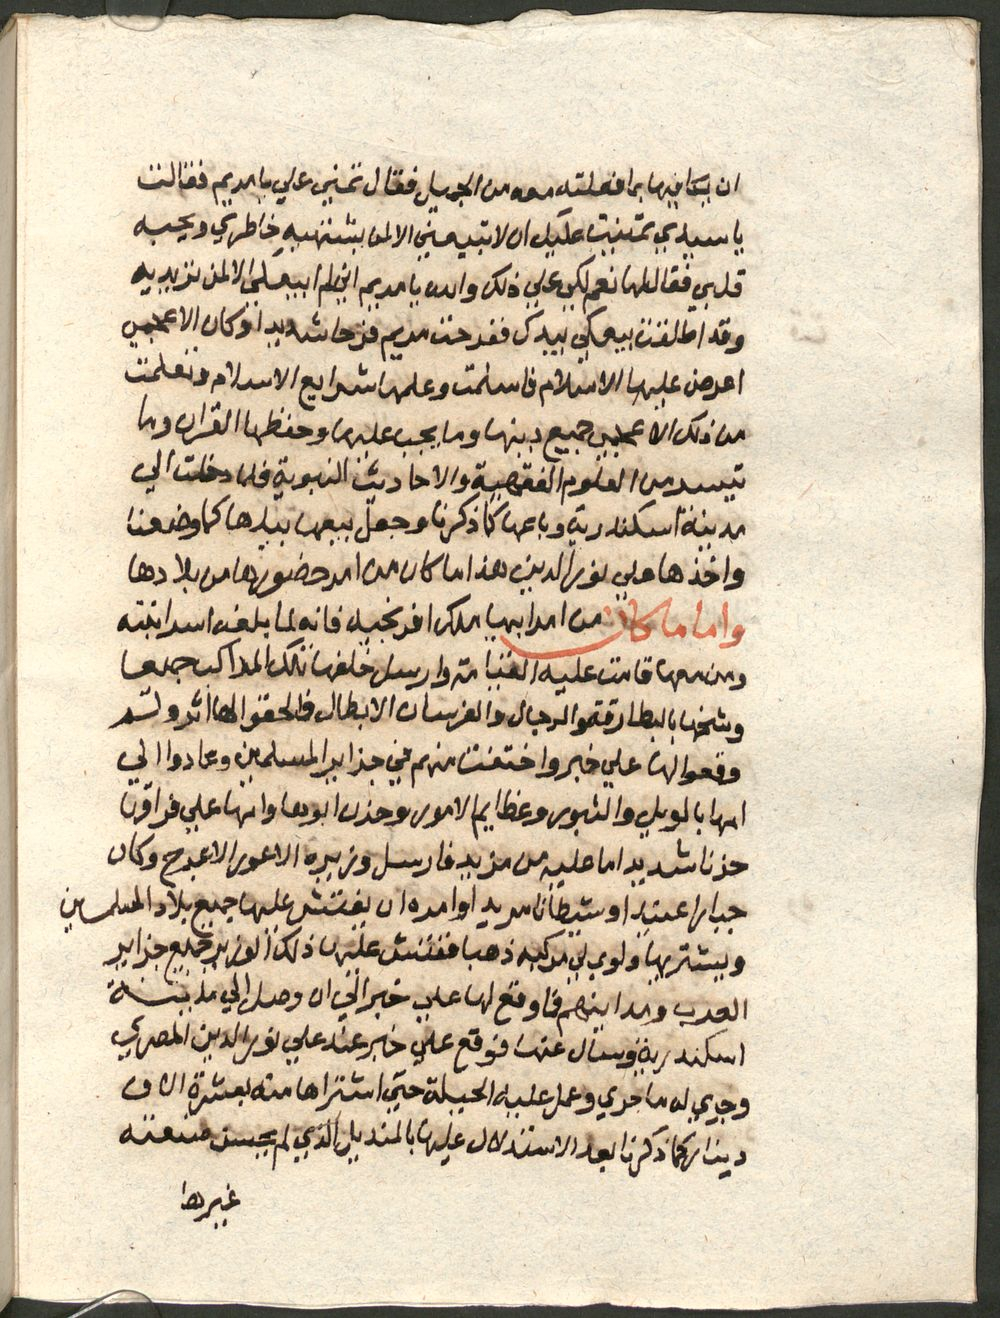 ان يكافيها بما فعلته معه من الجميل فقال تمني علي يا مريم فقالت
يا سيدي تمنيت عليك ان لا تبيعني الا لمن يشتهيه خاطري ويحبه
قلبي فقال لها نعم لكي علي ذلك والله يا مريم اني لم ابيعك الا لمن تريديه
وقد اطلقت بيعكي بيدك ففرحت مريم فرحا شديدا وكان الاعجمي
اعرض عليها الاسلام فاسلمت وعلمها شرايع الاسلام وتعلمت
من ذلك الاعجمي جميع دينها وما يجب عليها وحفظها القران وما
تيسر من العلوم الفقهية والاحاديث النبوية فلما دخلت الي
مدينة اسكندرية وباعها كما ذكرنا وجعل بيعها بيدها كما وضعنا
واخذها علي نور الدين هذا ما كان من امر حضورها من بلادها
واما ما كان من امر ابيها ملك افرنجيه فانه لما بلغه اسر ابنته
ومن معها قامت عليه القيامة وارسل خلفها تلك المراكب جمعا
وشحنها بالبطارقة والرجال والفرسان الابطال فلحقوا لها اثر ولم
وقعوا لها علي خبر واختفت منهم في جزاير المسلمين وعادوا الي
امها بالويل والثبور وعظايم الامور وحزن ابوها وامها علي فراقها
حزنا شديدا ما عليه من مزيد فارسل وزيره الاعور الاعرج وكان
جبارا عنيدا وشيطانا مريدا وامره ان يفتش عليها جميع بلاد المسلمين
ويشتريها ولو بمل مركبه ذهبا ففتش عليها ذلك الوزير جميع جزاير
العرب ومداينهم فما وقع لها علي خبر الي ان وصل الي مدينة
اسكندرية وسال عنها فوقع علي خبر عند علي نور الدين المصري
وجري له ما جري وعمل عليه الحيلة حتي اشتراها منه بعشرة الاف
دينار كما ذكرنا بعد الاستدلال عليها بالمنديل الذي لم يحسن صنعته
غيرها